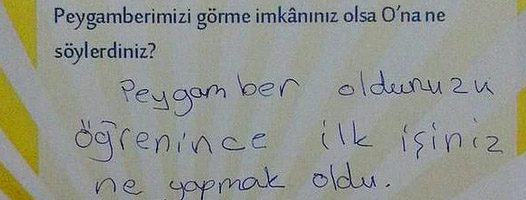 Peygamberimizi görme imkânınız olsa O'na ne
söylerdiniz?
Peygamber oldunuzu
öğrenince ilk işiniz
ne yapmak oldu.